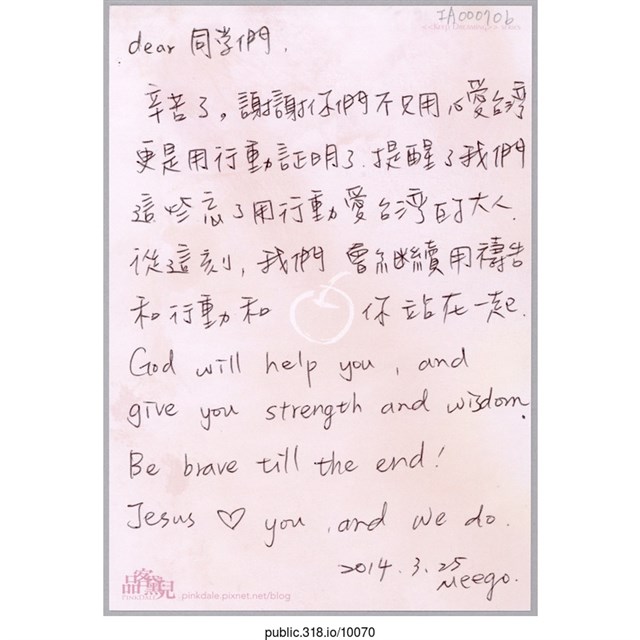 IA000706
dear 同学們.
辛苦了, 謝謝你們不只用心愛台灣
更是用行動証明了. 提醒了我們
這些忘了用行動愛台灣的大人.
從這刻, 我們會繼續用禱告
和行動和你站在一起.
God will help you, and
give you strength and wisdom.
Be brave till the end!
Jesus ♡ you, and we do.
2014.3.25
Meego.
品客黛兒
PINKDALE
pinkdale.pixnet.net/blog
public.318.io/10070